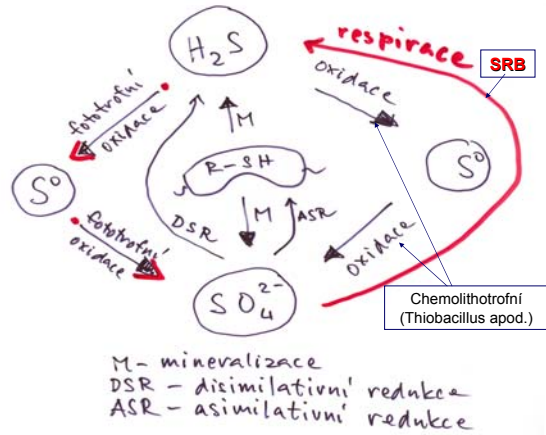 H₂S
respirace
SRB
fototrofní
oxidace
oxidace
M
R-SH
S⁰
S⁰
M
ASR
DSR
fototrofní
oxidace
oxidace
SO₄²⁻
Chemolithotrofní
(Thiobacillus apod.)
M - mineralizace
DSR - disimilativní redukce
ASR - asimilativní redukce